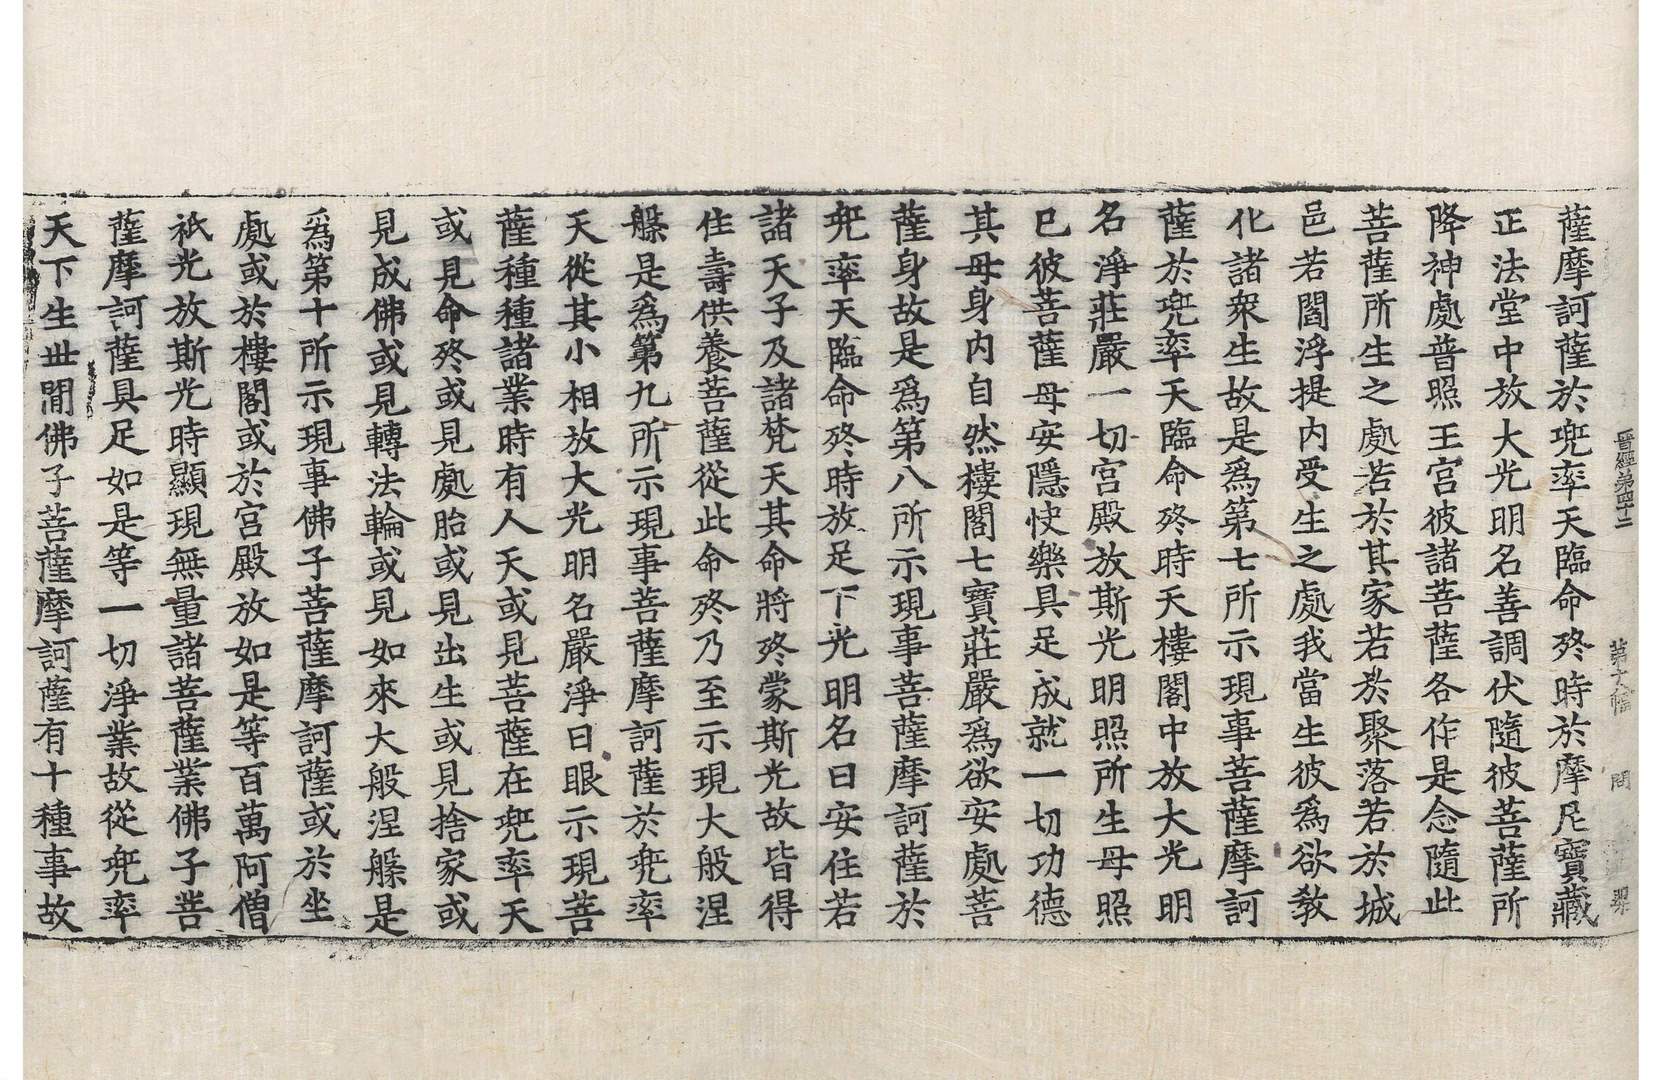 晉經第四十二 第十八幅 問
薩摩訶薩於兜率天臨命終時於摩尼寶藏
正法堂中放大光明名善調伏隨彼菩薩所
降神處普照王宮彼諸菩薩各作是念隨此
菩薩所生之處若於其家若於聚落若於城
邑若閻浮提內受生之處我當生彼爲欲教
化諸衆生故是爲第七所示現事菩薩摩訶
薩於兜率天臨命終時天樓閣中放大光明
名淨莊嚴一切宮殿放斯光明照所生母照
已彼菩薩母安隱快樂具足成就一切功德
其母身內自然樓閣七寶莊嚴爲欲安處菩
薩身故是爲第八所示現事菩薩摩訶薩於
兜率天臨命終時放足下光明名曰安住若
諸天子及諸梵天其命將終蒙斯光故皆得
住壽供養菩薩從此命終乃至示現大般涅
槃是爲第九所示現事菩薩摩訶薩於兜率
天從其小相放大光明名嚴淨日眼示現菩
薩種種諸業時有人天或見菩薩在兜率天
或見命終或見處胎或見出生或見捨家或
見成佛或見轉法輪或見如來大般涅槃是
爲第十所示現事佛子菩薩摩訶薩或於坐
處或於樓閣或於宮殿放如是等百萬阿僧
祇光放斯光時顯現無量諸菩薩業佛子菩
薩摩訶薩具足如是等一切淨業故從兜率
天下生世間佛子菩薩摩訶薩有十種事故